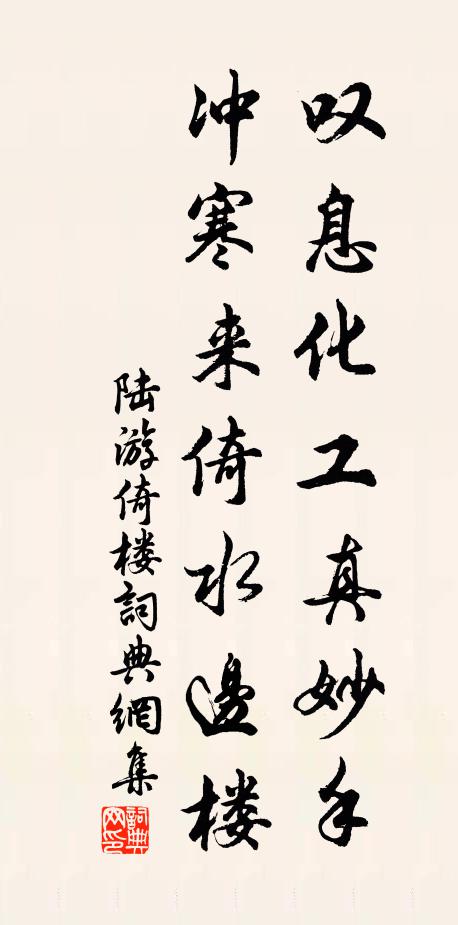 叹息化工真妙手
冲寒来倚水邊楼
陆游倚楼詞典網集
詞典網印